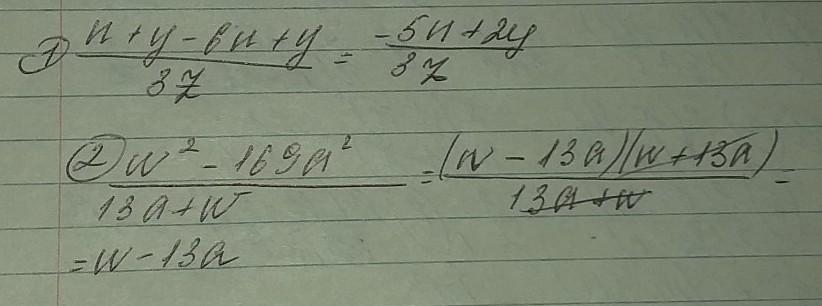 ① (n + y - 6n + y)/(3z) = (-5n + 2y)/(3z)
② (w² - 169a²)/(13a + w) = ((w - 13a)(w + 13a))/(13a + w) =
= w - 13a